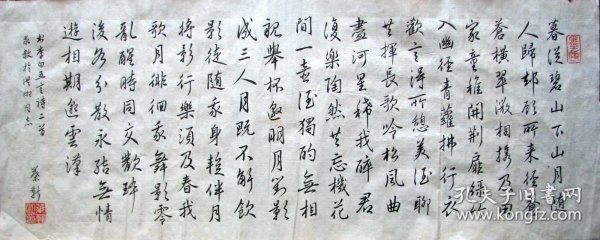 暮從碧山下山月隨
人歸却顧所來徑蒼
蒼橫翠微相携及田
家童稚開荆扉綠竹
入幽徑青蘿拂行衣
歡言得所憩美酒聊
共揮長歌吟松風曲
盡河星稀我醉君
復樂陶然共忘機花
間一壺酒獨酌無相
親舉杯邀明月對影
成三人月既不解飲
影徒隨我身暫伴月
將影行樂須及春我
歌月徘徊我舞影零
亂醒時同交歡醉
後各分散永結無情
遊相期邈雲漢
書李白五言詩二首
同志
孔夫子旧书网